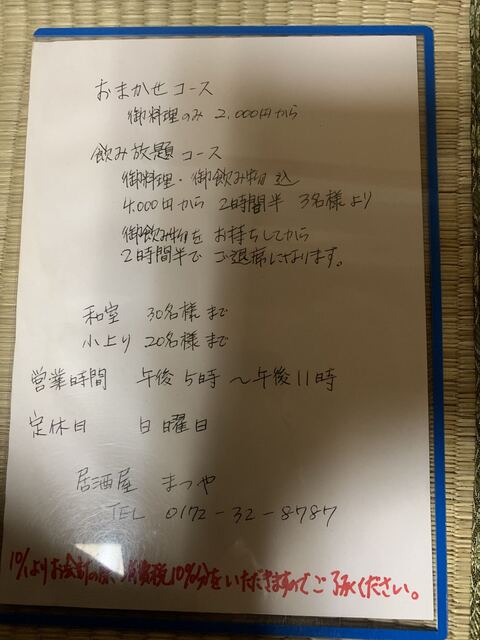 おまかせコース
御料理のみ 2,000円から
飲み放題コース
御料理・御飲み物 込
4,000円から 2時間半 3名様より
御飲み物を お持ちしてから
2時間半で ご退席になります。
和室 30名様まで
小上り 20名様まで
営業時間 午後5時～午後11時
定休日 日曜日
居酒屋 まつや
TEL 0172-32-8787
10/1よりお会計の際、消費税10%分をいただきますのでご了承ください。